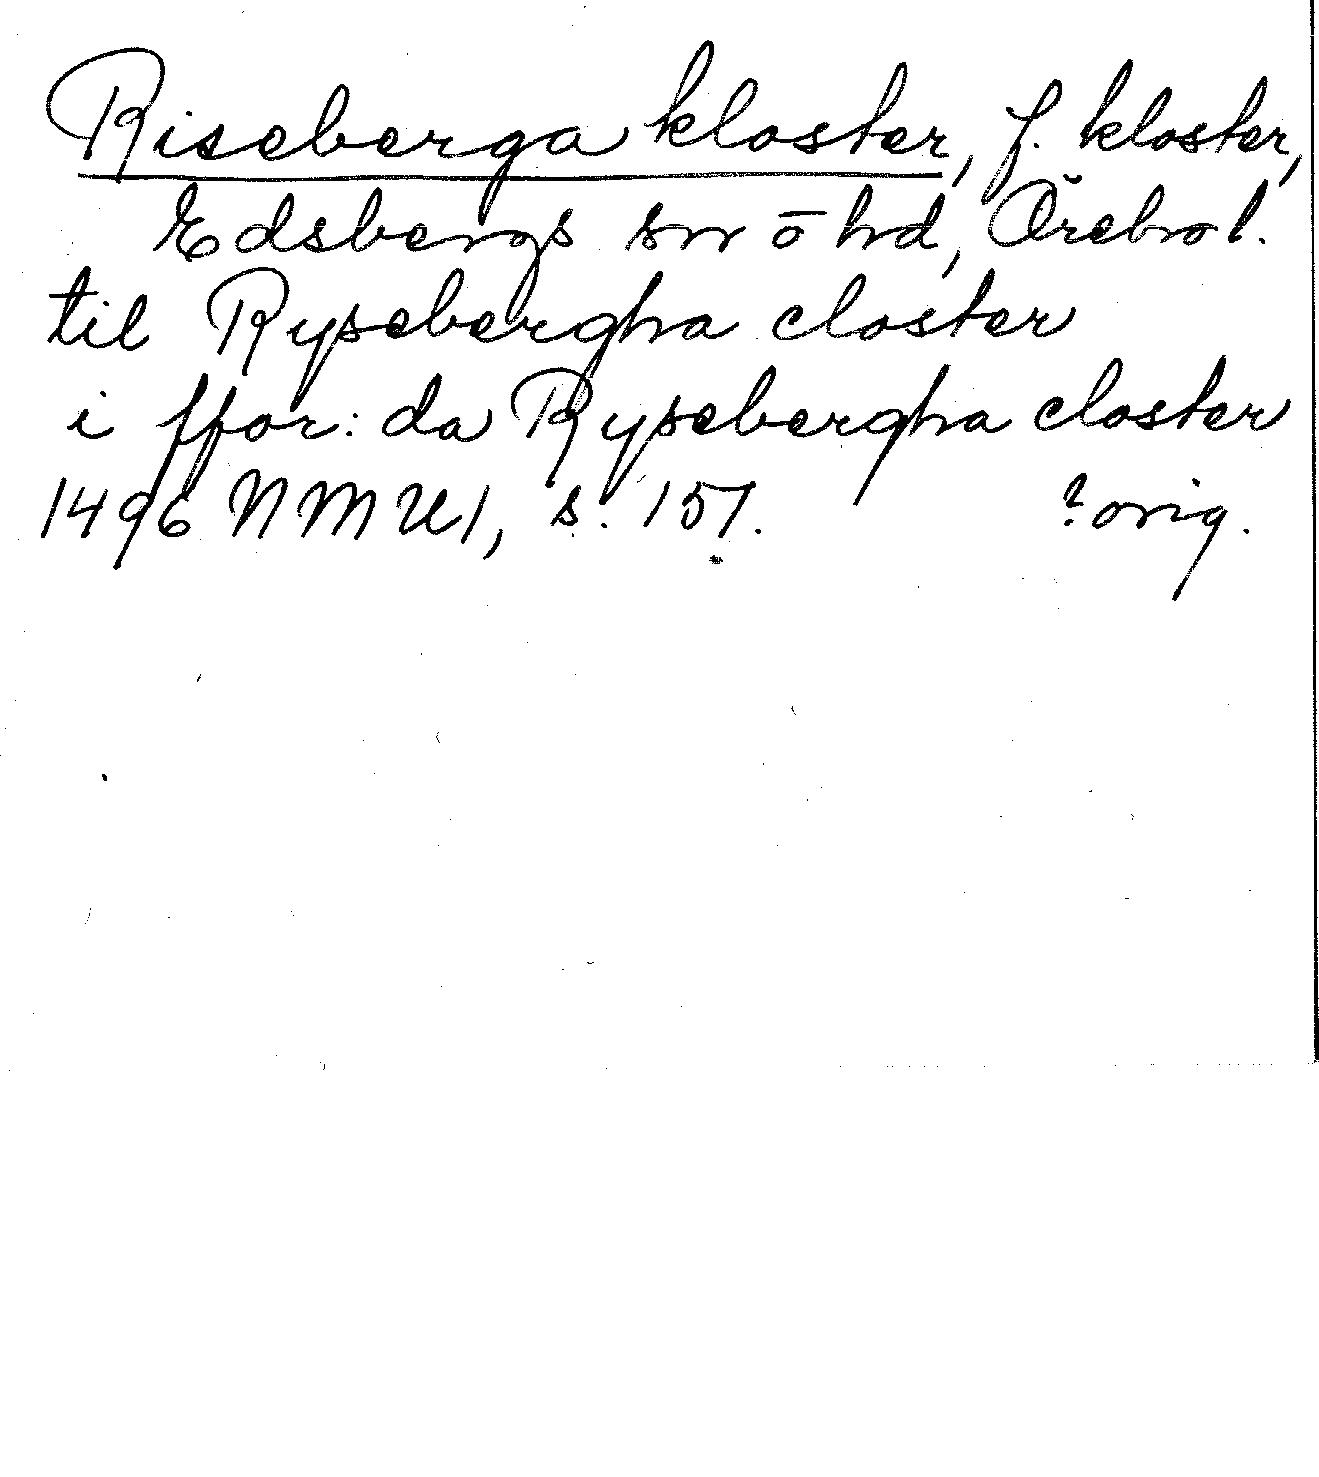 Riseberga kloster, f. kloster,
Edsbergs sn o hd, Örebro l.
til Rysebergha closter
i ffor: da Rysebergha closter
1496 NMU1, s. 157. ? orig.